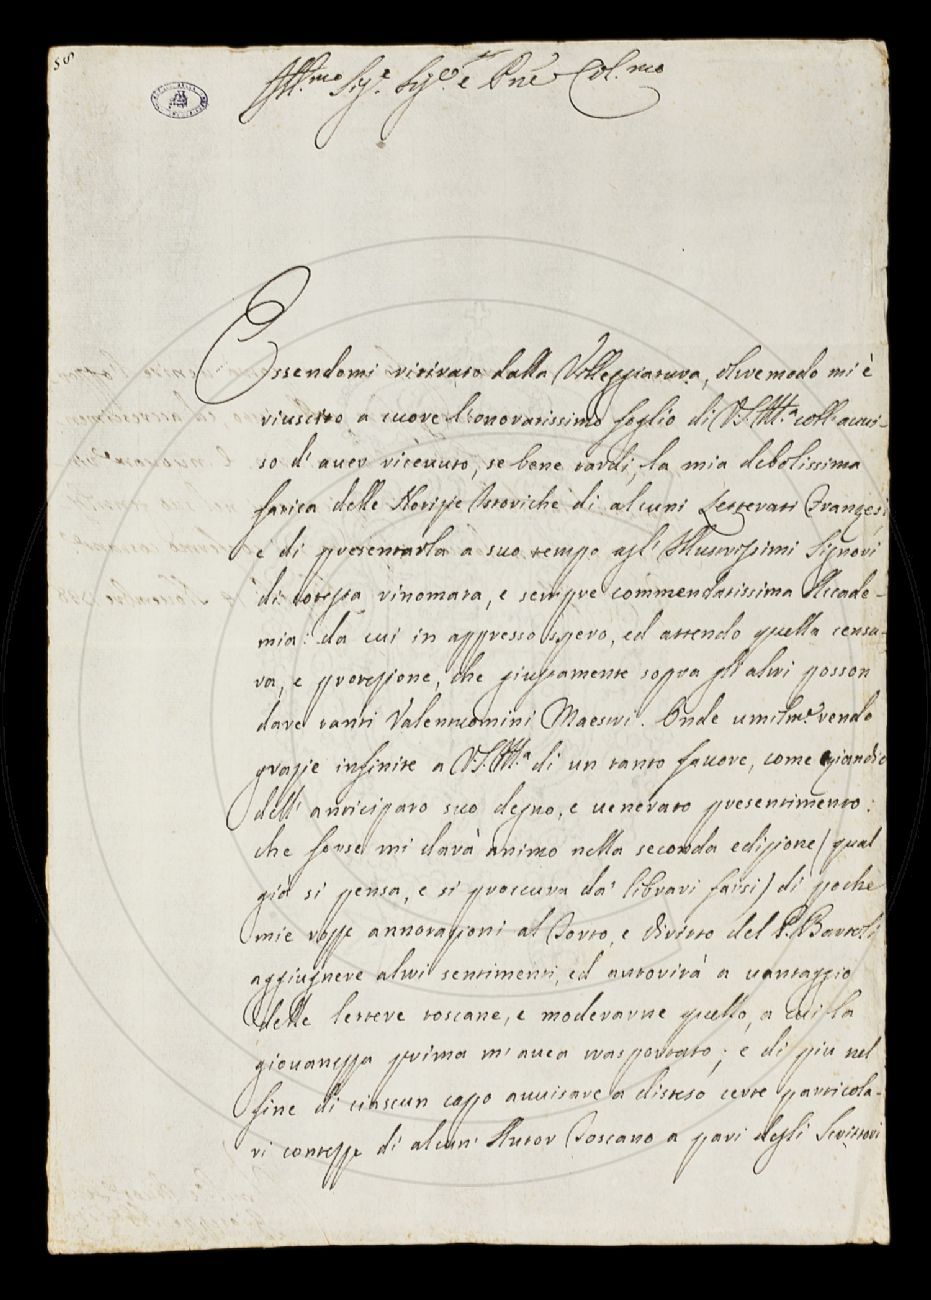 56
Ill.mo Sig.r Sig.r e Pne Col.mo
Essendomi ritirato dalla Villeggiatura, oltremodo mi è
riuscito a cuore l'onoratissimo foglio di V.S. Ill.a coll'avvi-
so d'aver ricevuto, se bene tardi, la mia debolissima
fatica delle Notizie Istoriche di alcuni Letterati Franzesi
e di presentarla a suo tempo agl'Illustrissimi Signori
di cotesta rinomata, e sempre commendatissima Accade-
mia: da cui in appresso spero, ed attendo quella censu-
ra, e protezione, che giustamente sopra gli altri posson
dare tanti Valentuomini Maestri. Onde umilm.e rendo
grazie infinite a V.S. Ill.a di un tanto favore, come eziandio
dell'anticipato suo degno, e venerato presentimento:
che forse mi darà animo nella seconda edizione (qual
già si pensa, e si proccura da' librari farsi) di poche
mie rozze annotazioni al Torto, e Diritto del P. Bartoli
aggiugnere altri sentimenti, ed autorità a vantaggio
delle lettere toscane, e moderarne quello, a cui la
giovanezza prima m'avea trasportato; e di più nel
fine di ciascun capo avvisare a disteso certe particola-
ri contezze di alcun' Autor Toscano a pari degli Scrittori